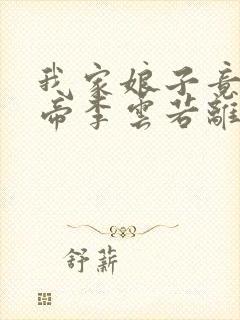 我家娘子竟
帝李雲若離
舒薪